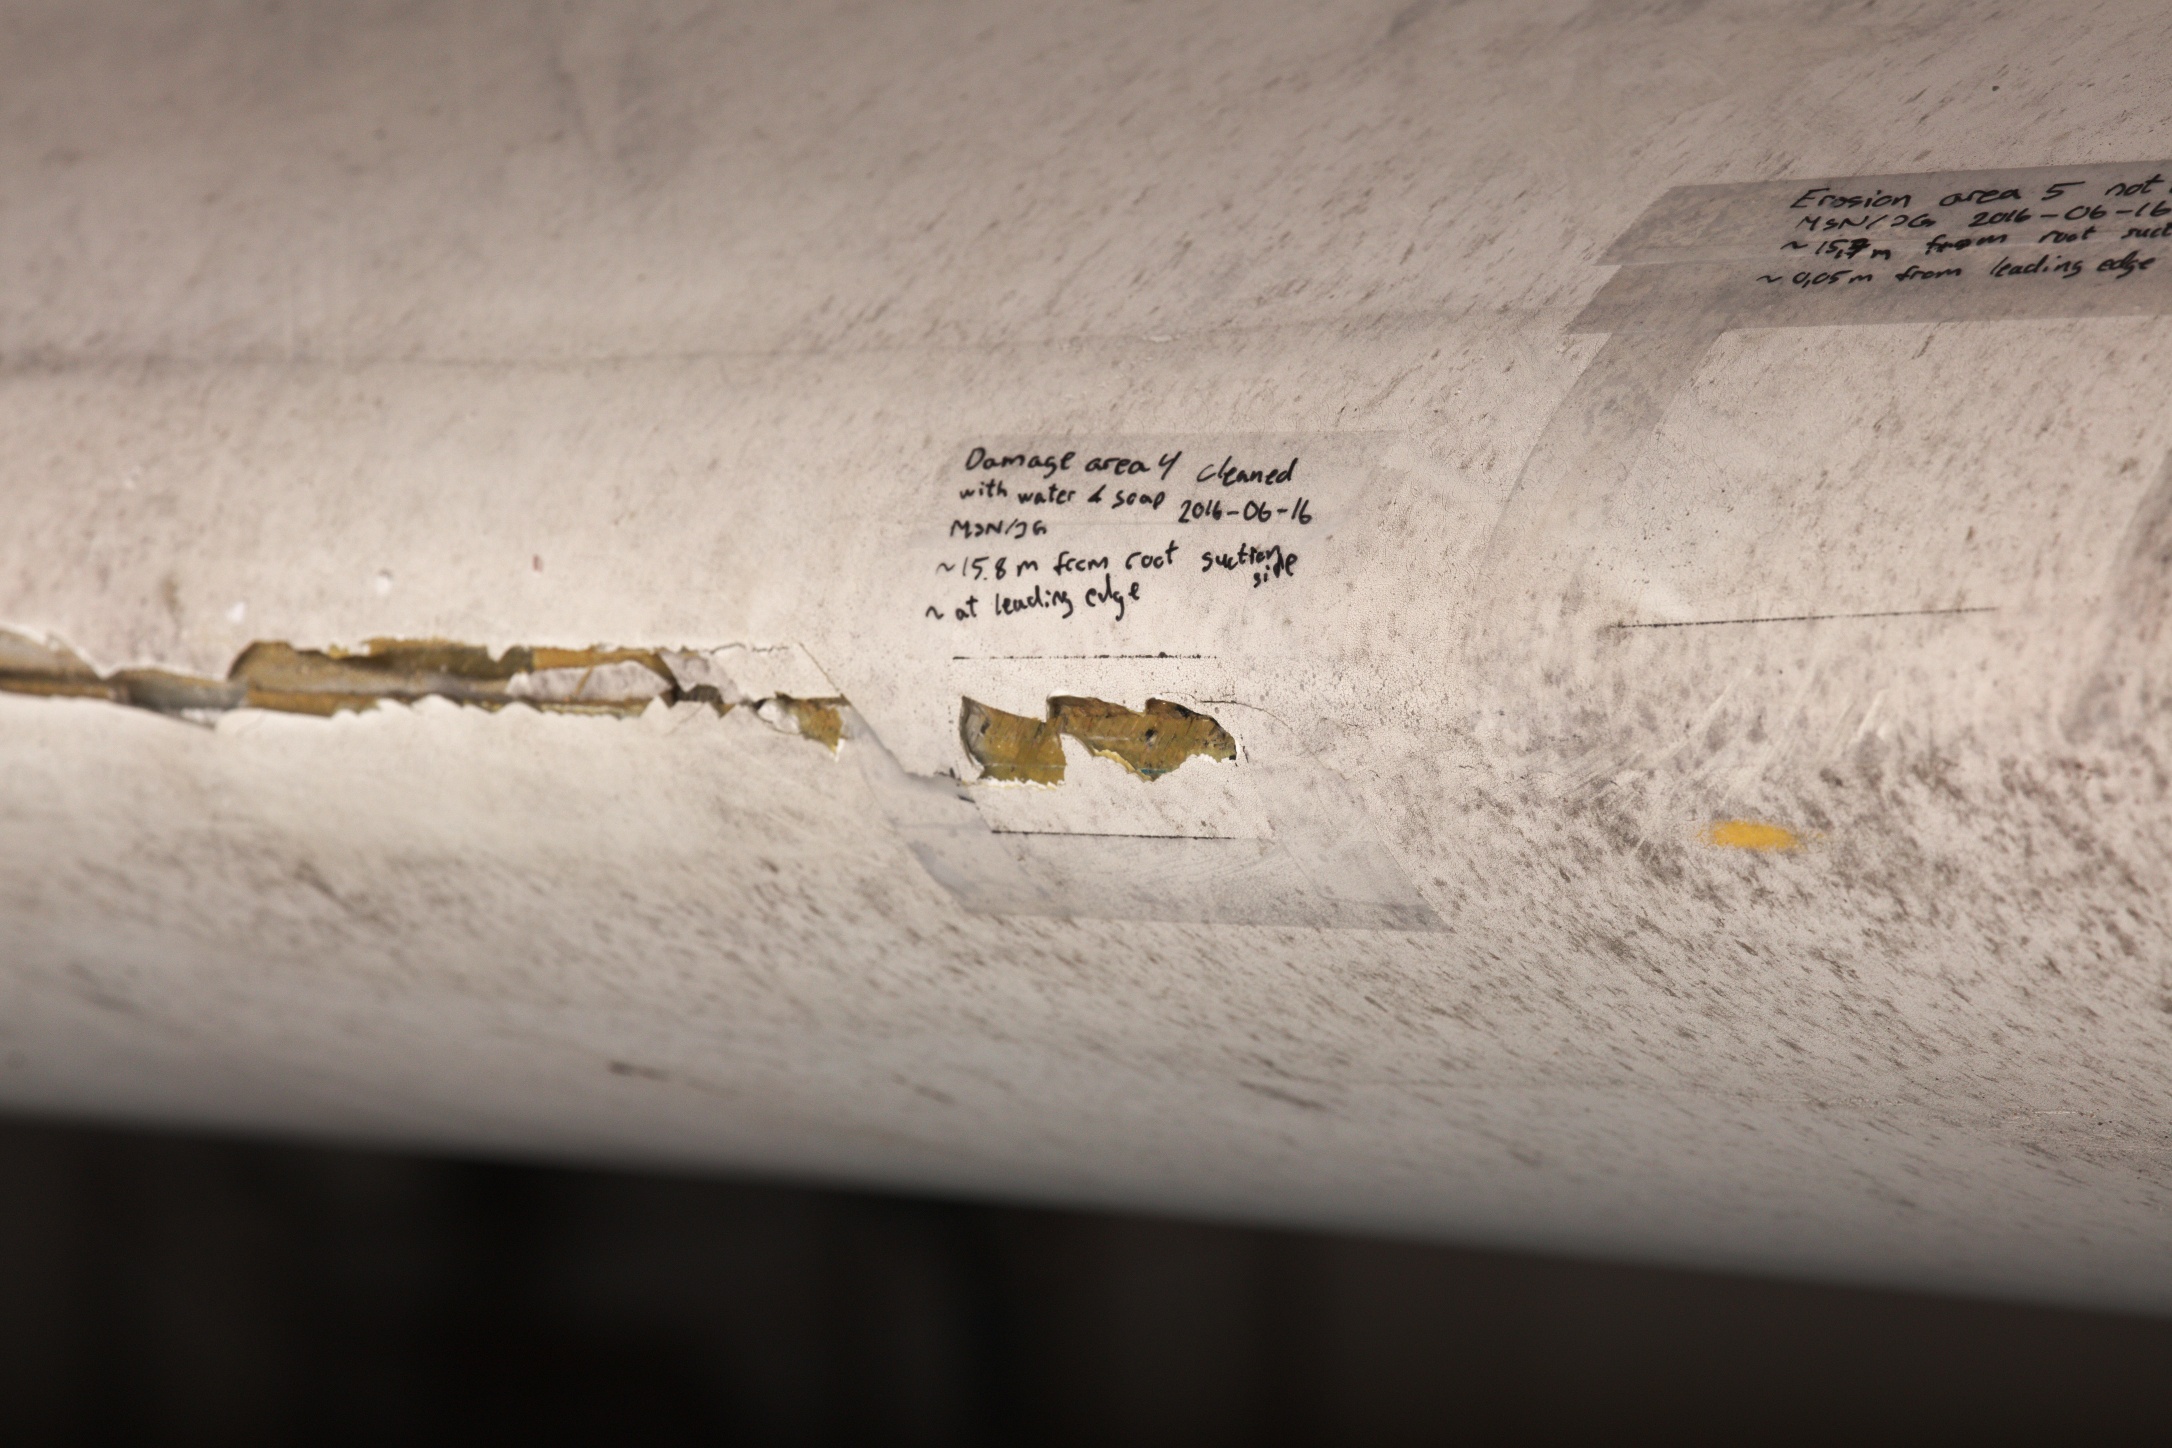 Damage area 4 cleaned
with water & soap 2016-06-16
MSN/JG
~15.8 m from root suction side
~ at leading edge
Erosion area 5 not
MSN/JG 2016-06-16
m from root suct
~ 0,05 m from leading edge